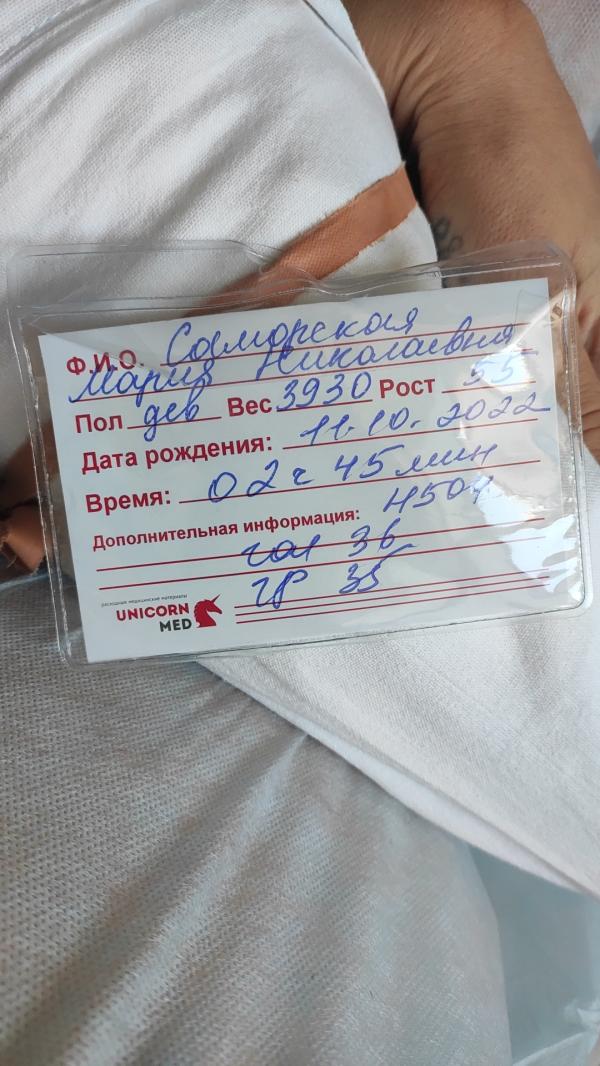 Ф.И.О. Саморская
Мария Николаевна
Пол дев Вес 3930 Рост 55
Дата рождения: 11.10.2022
Время: 02ч 45мин
Дополнительная информация: 4504
гол 36
гр 35
расходные медицинские материалы
UNICORN
MED